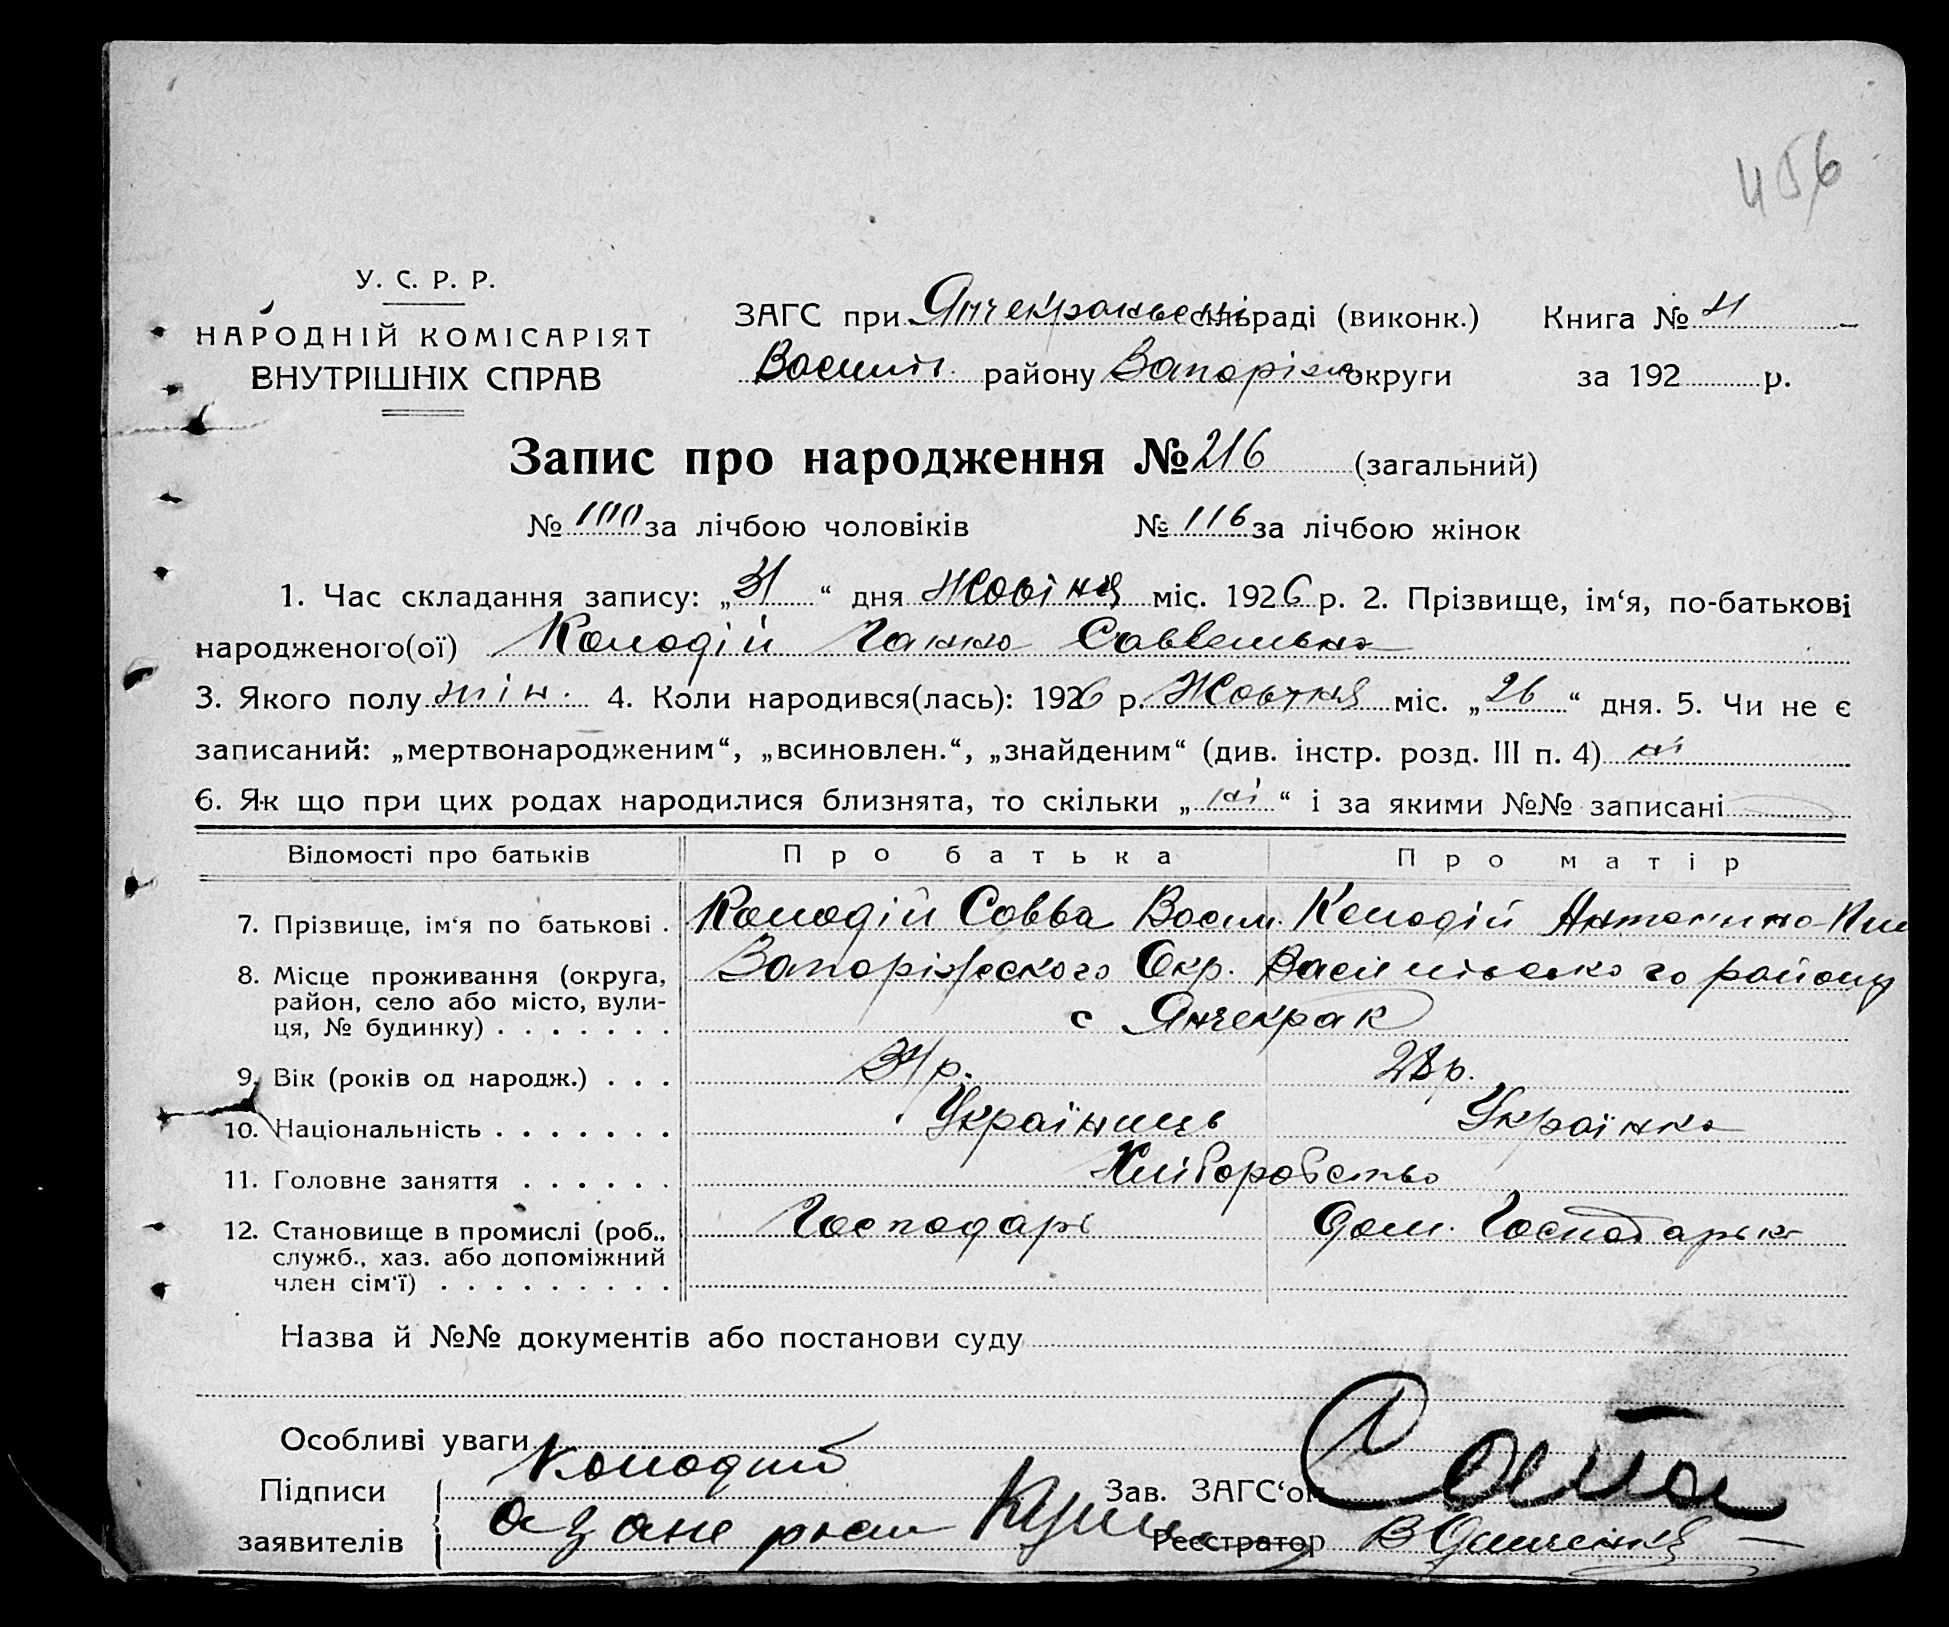 456
У. С. Р. Р.
НАРОДНІЙ КОМІСАРІЯТ
ВНУТРІШНІХ СПРАВ
ЗАГС при Янчекракській сільраді (виконк.) Книга №
Василів. району Запоріз. округи за 192 р.
Запис про народження № 216 (загальний)
№ 100 за лічбою чоловіків № 116 за лічбою жінок
1. Час складання запису: „31“ дня Жовтня міс. 1926 р. 2. Прізвище, ім‘я, по-батькові
народженого(ої) Колодій Ганна Саввельна
3. Якого полу жін. 4. Коли народився(лась): 1926 р. Жовтня міс. „26“ дня. 5. Чи не є
записаний: „мертвонародженим“, „всиновлен.“, „знайденим“ (див. інстр. розд. III п. 4) ні
6. Як що при цих родах народилися близнята, то скільки „ні“ і за якими №№ записані
Відомості про батьків Про батька Про матір
7. Прізвище, ім‘я по батькові . Колодій Савва Васил. Колодій Антонина
8. Місце проживання (округа, Запоріжського Окр. Васильівського району
район, село або місто, вули-
ця, № будинку) . . . . . . . с Янчекрак
9. Вік (років од народж.) . . . 34 р. 28 р.
10. Національність . . . . . . . Українець Українка
11. Головне заняття . . . . . . Хліборобство
12. Становище в промислі (роб., Господарь Дом. Господарька
служб., хаз. або допоміжний
член сім‘ї) . . . . . . . . .
Назва й №№ документів або постанови суду
Особливі уваги
Підписи Колодий Зав. ЗАГС‘ом
заявителів Реєстратор